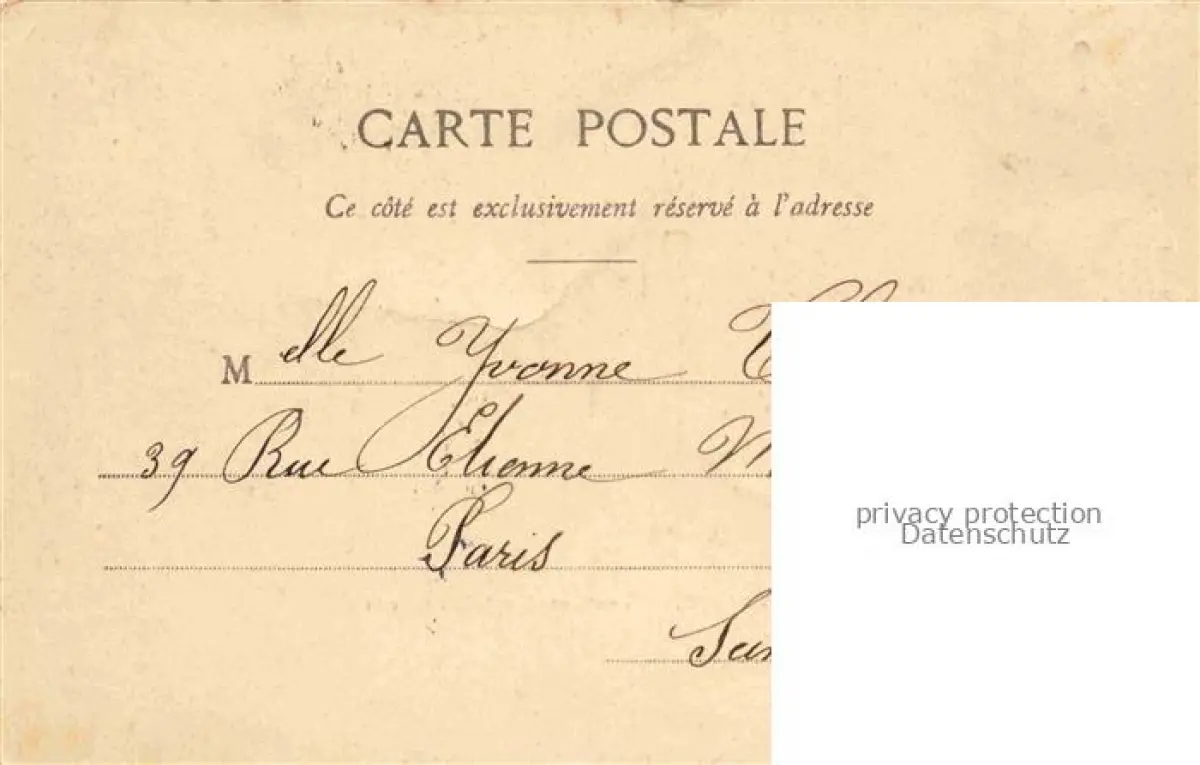 CARTE POSTALE
Ce côté est exclusivement réservé à l'adresse
Melle Yvonne
39 Rue Etienne
Paris
privacy protection
Datenschutz